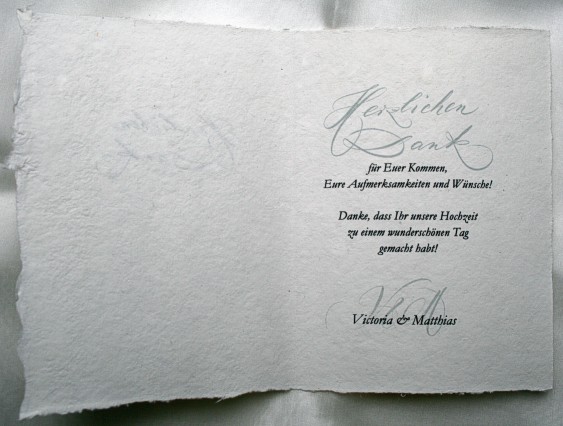 Herzlichen
Dank
für Euer Kommen,
Eure Aufmerksamkeiten und Wünsche!
Danke, dass Ihr unsere Hochzeit
zu einem wunderschönen Tag
gemacht habt!
V & M
Victoria & Matthias